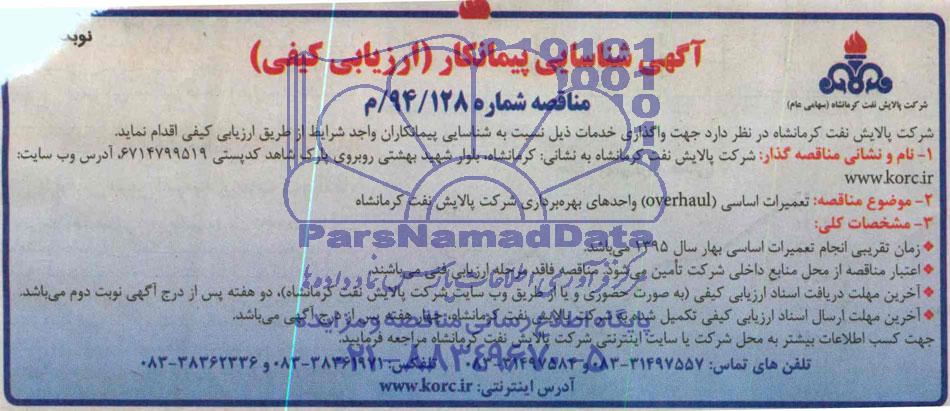 نوبت
آگهی شناسایی پیمانکار (ارزیابی کیفی)
مناقصه شماره ۹۴/۱۲۸/م
شرکت پالایش نفت کرمانشاه (سهامی عام)
شرکت پالایش نفت کرمانشاه در نظر دارد جهت واگذاری خدمات ذیل نسبت به شناسایی پیمانکاران واجد شرایط از طریق ارزیابی کیفی اقدام نماید.
۱- نام و نشانی مناقصه گذار: شرکت پالایش نفت کرمانشاه به نشانی: کرمانشاه، بلوار شهید بهشتی روبروی پارک شاهد کدپستی ۶۷۱۴۷۹۹۵۱۹، آدرس وب سایت:
www.korc.ir
۲- موضوع مناقصه: تعمیرات اساسی (overhaul) واحدهای بهره‌برداری شرکت پالایش نفت کرمانشاه
۳- مشخصات کلی:
ParsNamadData
زمان تقریبی انجام تعمیرات اساسی بهار سال ۱۳۹۵ می‌باشد.
اعتبار مناقصه از محل منابع داخلی شرکت تأمین می‌شود. مناقصه فاقد مرحله ارزیابی فنی می‌باشند
مرکز فرآوری اطلاعات پارس نماد داده‌ها
آخرین مهلت دریافت اسناد ارزیابی کیفی (به صورت حضوری و یا از طریق وب سایت شرکت پالایش نفت کرمانشاه)، دو هفته پس از درج آگهی نوبت دوم می‌باشد.
آخرین مهلت ارسال اسناد ارزیابی کیفی تکمیل شده به شرکت پالایش نفت کرمانشاه، چهار هفته پس از درج آگهی می‌باشد.
پایگاه اطلاع رسانی مناقصه و مزایده
جهت کسب اطلاعات بیشتر به محل شرکت یا سایت اینترنتی شرکت پالایش نفت کرمانشاه مراجعه فرمایید.
۰۲۱-۸۸۳۴۹۶۷۰-۵
تلفن های تماس: ۳۱۴۹۷۵۵۷-۰۸۳ و ۳۱۴۹۷۵۸۴-۰۸۳ تلفکس: ۳۸۳۶۱۹۱۱-۰۸۳ و ۳۸۳۶۲۳۳۶-۰۸۳
آدرس اینترنتی: www.korc.ir